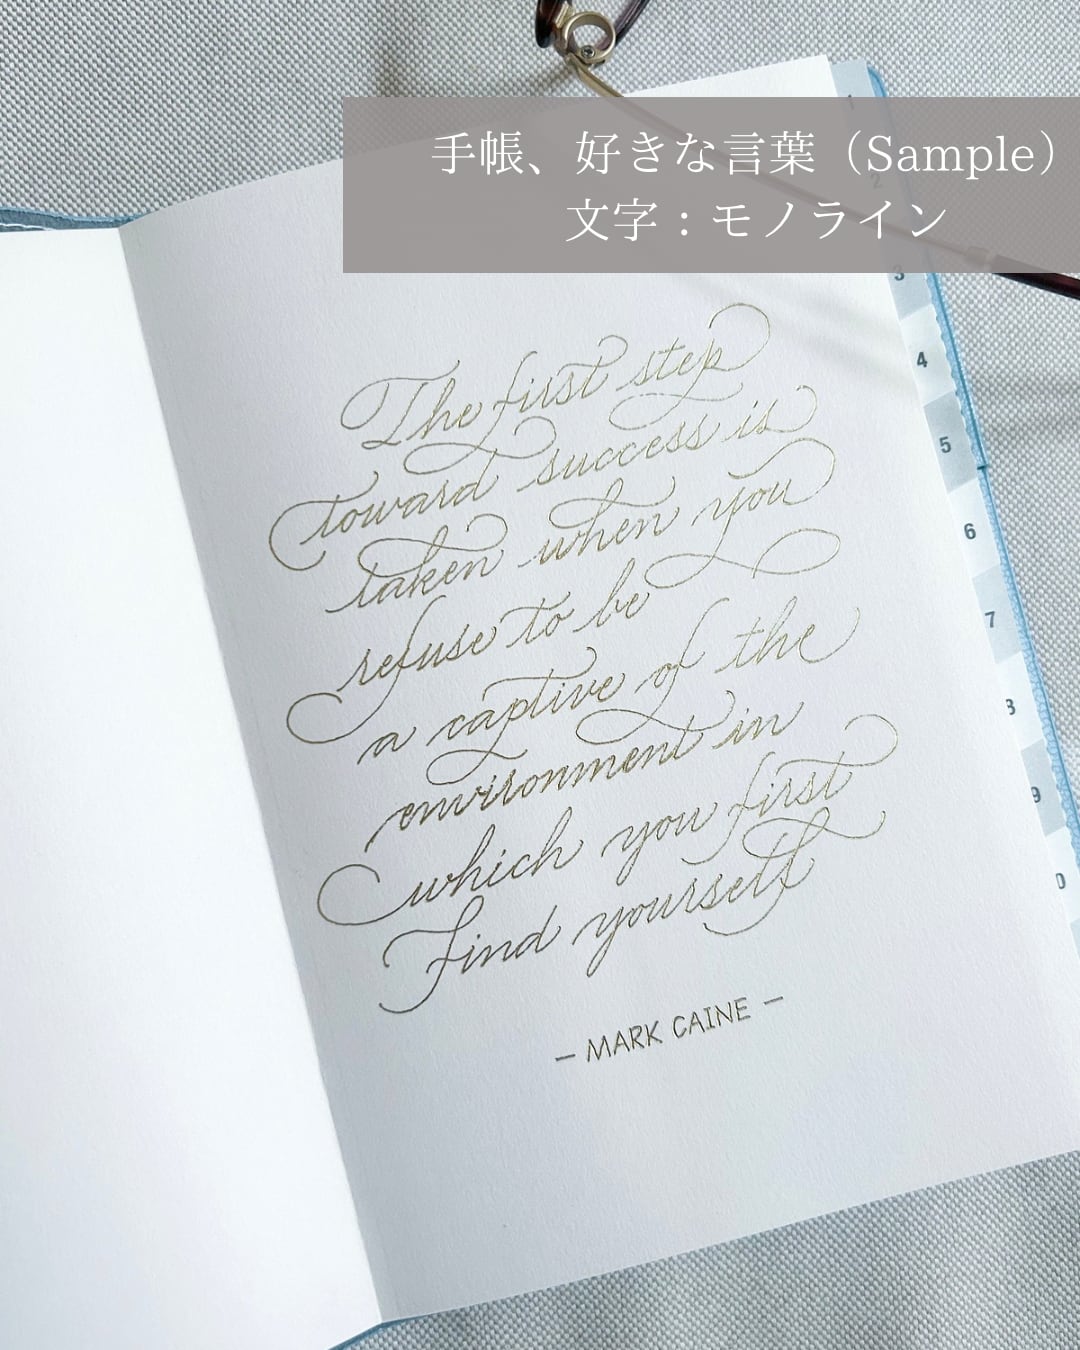 手帳、好きな言葉（Sample）
文字：モノライン
The first step
toward success is
taken when you
refuse to be
a captive of the
environment in
which you first
find yourself
– MARK CAINE –
1
2
3
4
5
6
7
8
9